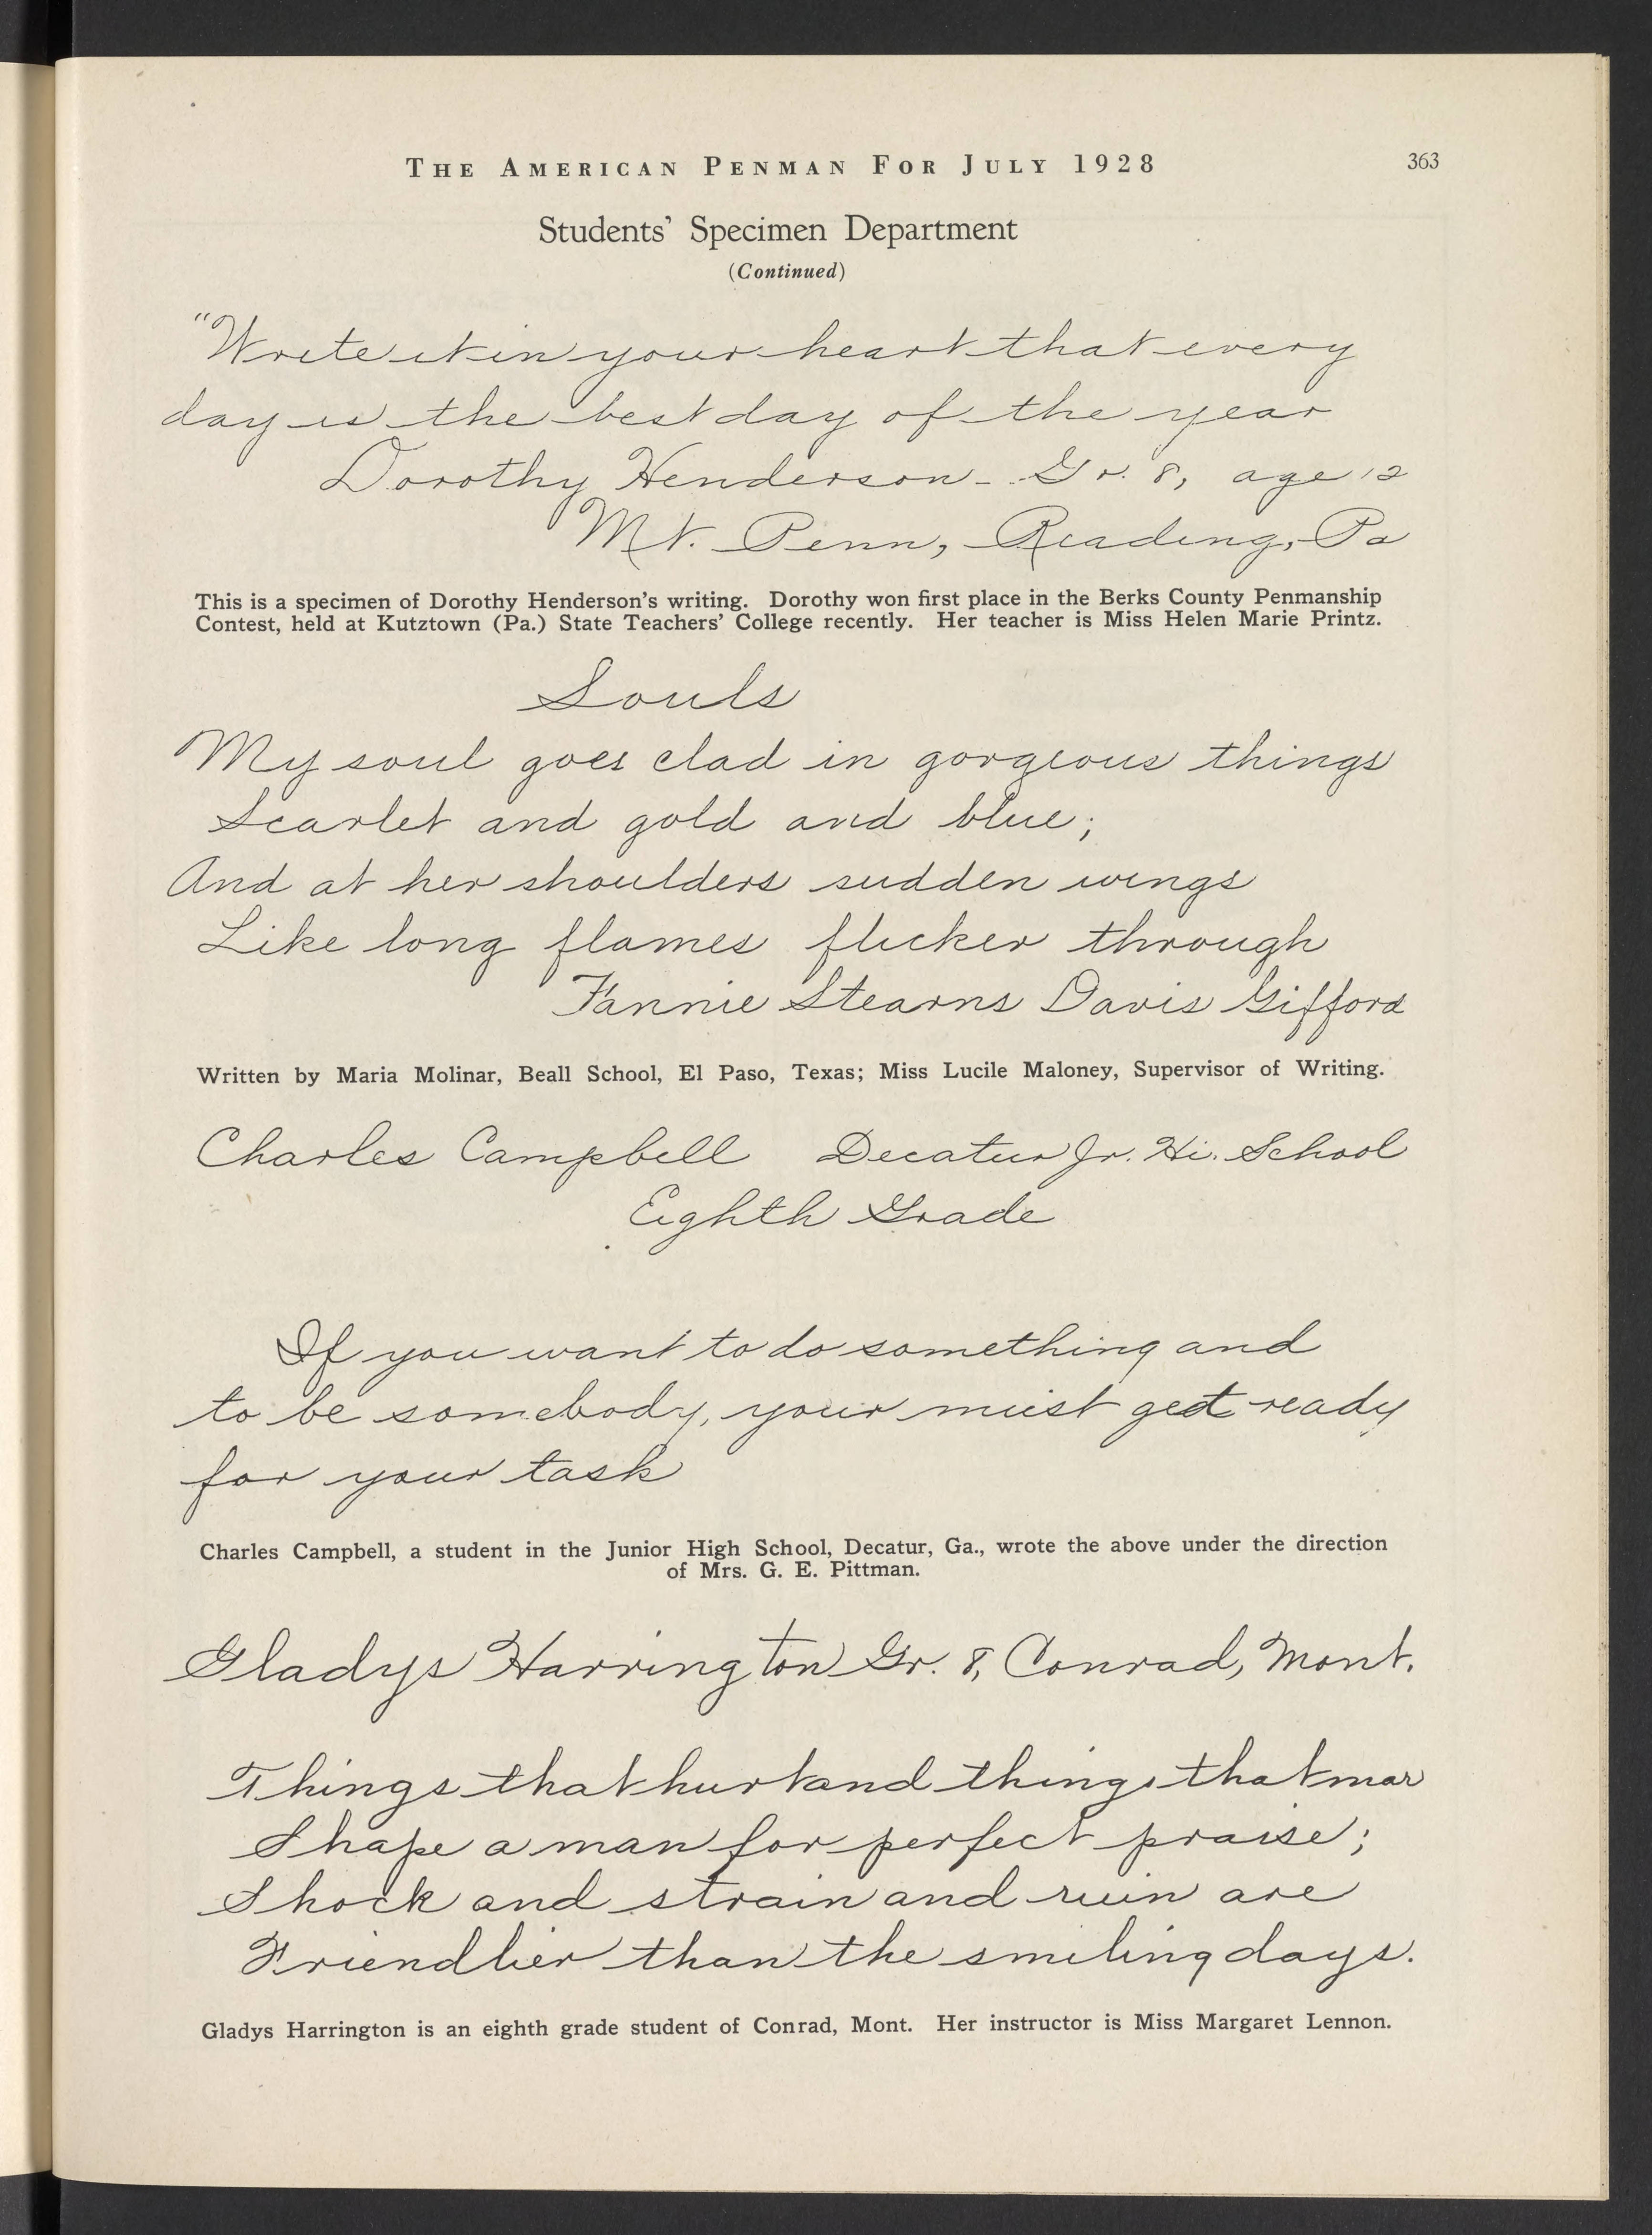 THE AMERICAN PENMAN FOR JULY 1928 363
Students' Specimen Department
(Continued)
"Write it in your heart that every
day is the best day of the year
Dorothy Henderson - Gr. 8, age 12
Mt. Penn, Reading, Pa
This is a specimen of Dorothy Henderson's writing. Dorothy won first place in the Berks County Penmanship
Contest, held at Kutztown (Pa.) State Teachers' College recently. Her teacher is Miss Helen Marie Printz.
Souls
My soul goes clad in gorgeous things
Scarlet and gold and blue;
And at her shoulders sudden wings
Like long flames flicker through
Fannie Stearns Davis Gifford
Written by Maria Molinar, Beall School, El Paso, Texas; Miss Lucile Maloney, Supervisor of Writing.
Charles Campbell Decatur Jr. Hi. School
Eighth Grade
If you want to do something and
to be somebody, your must get ready
for your task
Charles Campbell, a student in the Junior High School, Decatur, Ga., wrote the above under the direction
of Mrs. G. E. Pittman.
Gladys Harrington Gr. 8, Conrad, Mont.
Things that hurt and things that mar
Shape a man for perfect praise;
Shock and strain and ruin are
Friendlier than the smiling days.
Gladys Harrington is an eighth grade student of Conrad, Mont. Her instructor is Miss Margaret Lennon.